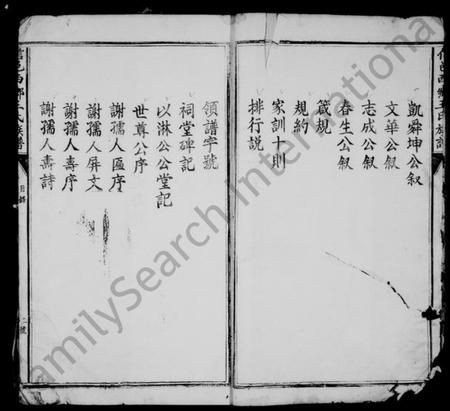 凱舜坤公叙
文華公叙
志成公叙
春生公叙
箴規
規約
家訓十則
排行説
領譜字號
祠堂碑記
以淋公公堂記
世尊公序
謝孺人匾序
謝孺人屏文
謝孺人壽序
謝孺人壽詩
信邑西鄉王氏族譜
目錄
FamilySearch International